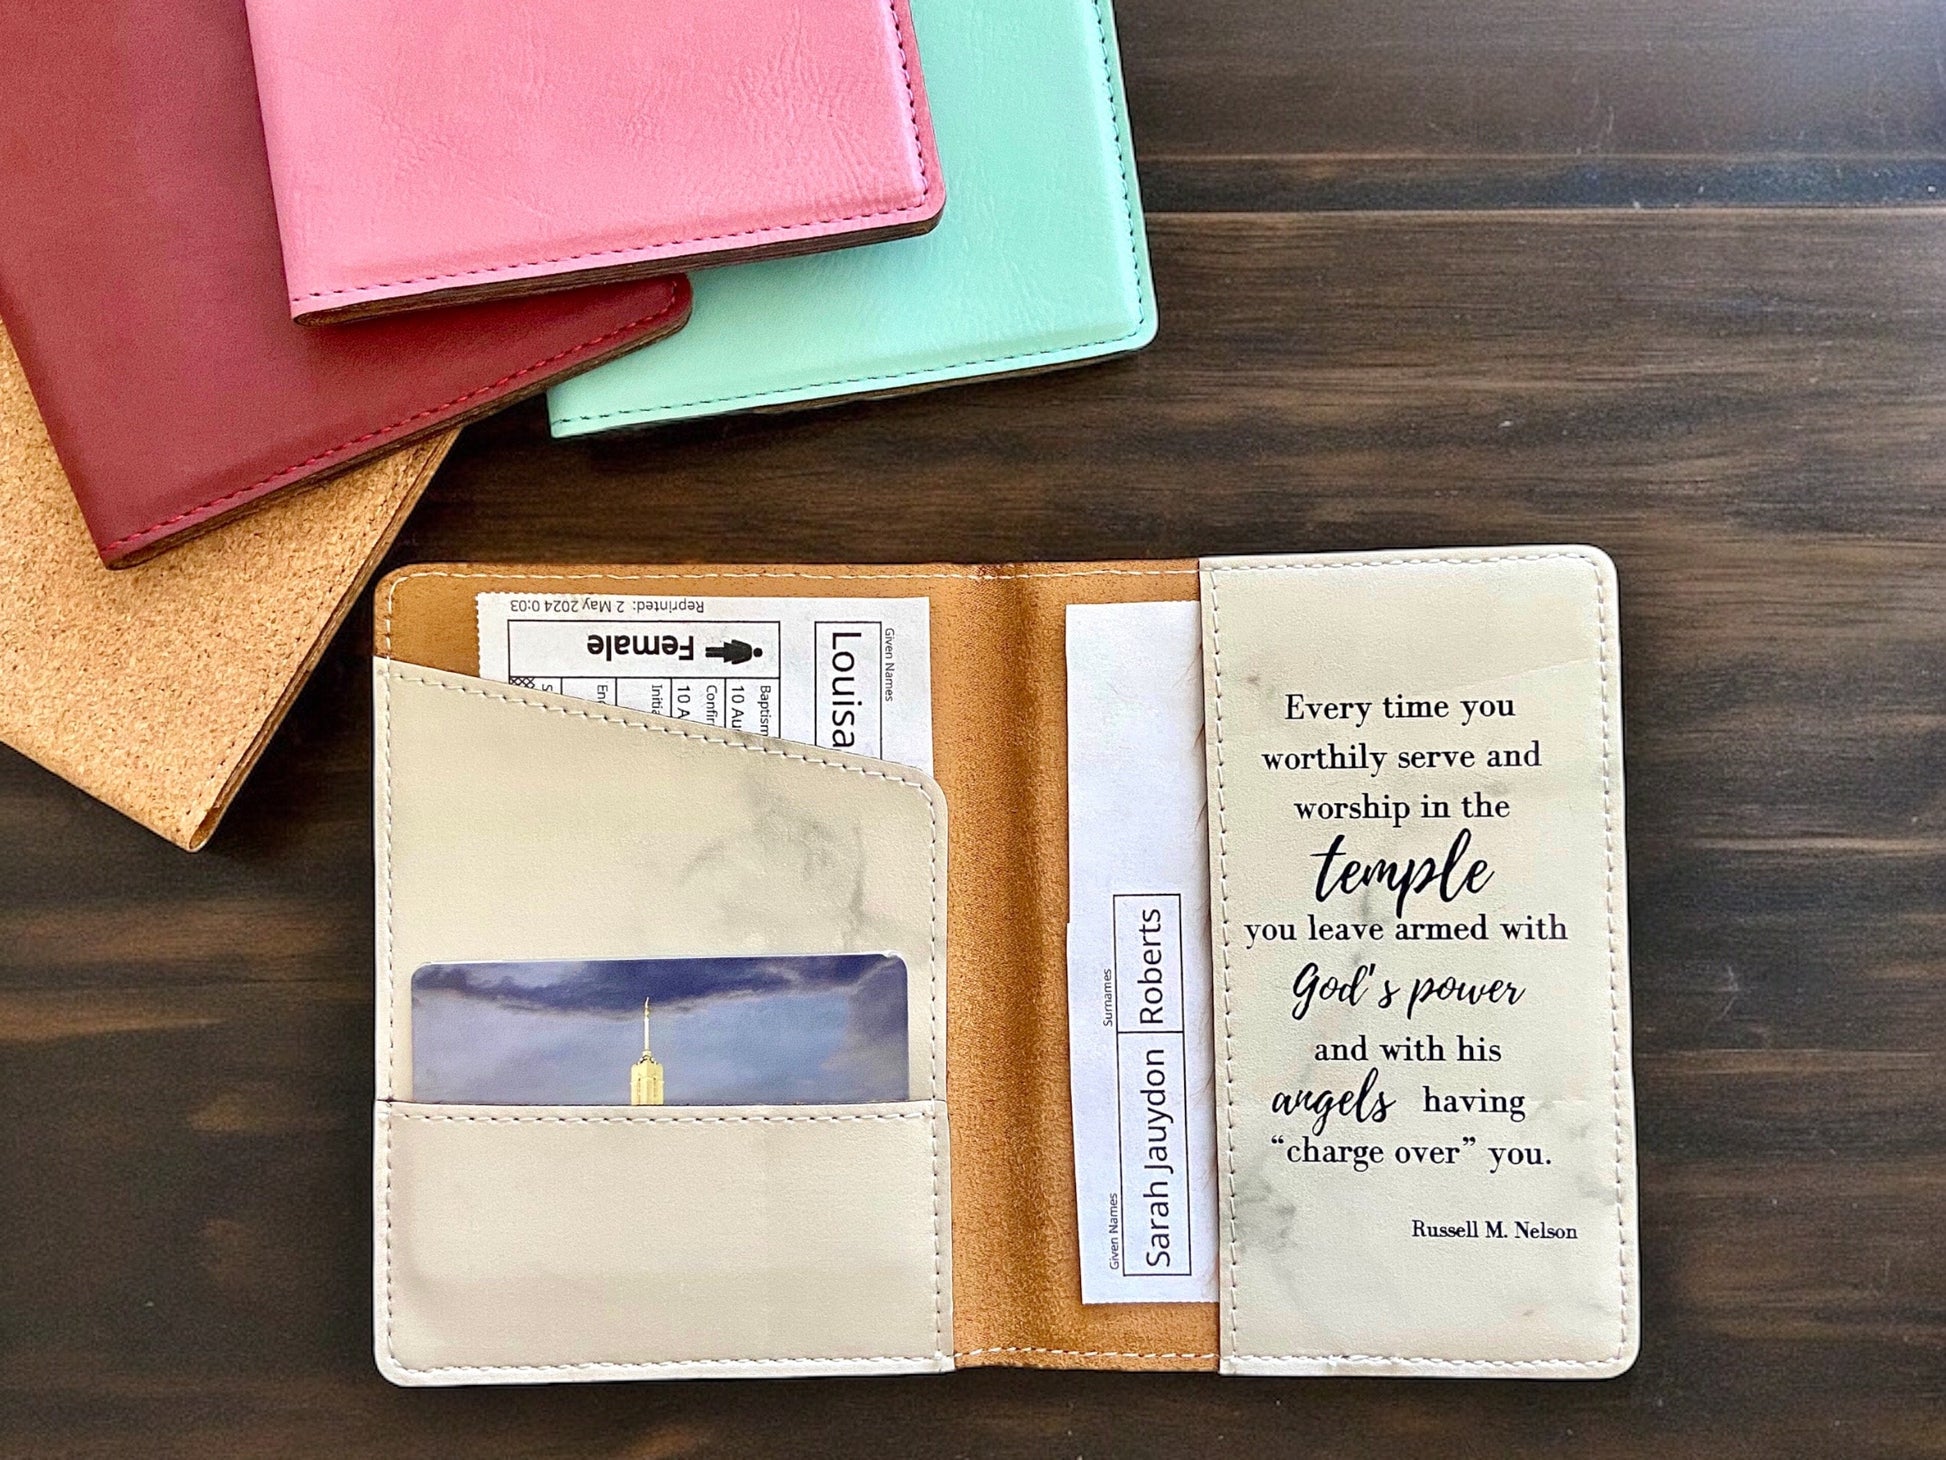 Reprinted: 2 May 2024 0:03
Female
Given Names
Louisa
Baptism
10 Au
Confir
10 A
Initia
Surnames
Roberts
Given Names
Sarah Jauydon
Every time you
worthily serve and
worship in the
temple
you leave armed with
God's power
and with his
angels having
“charge over” you.
Russell M. Nelson